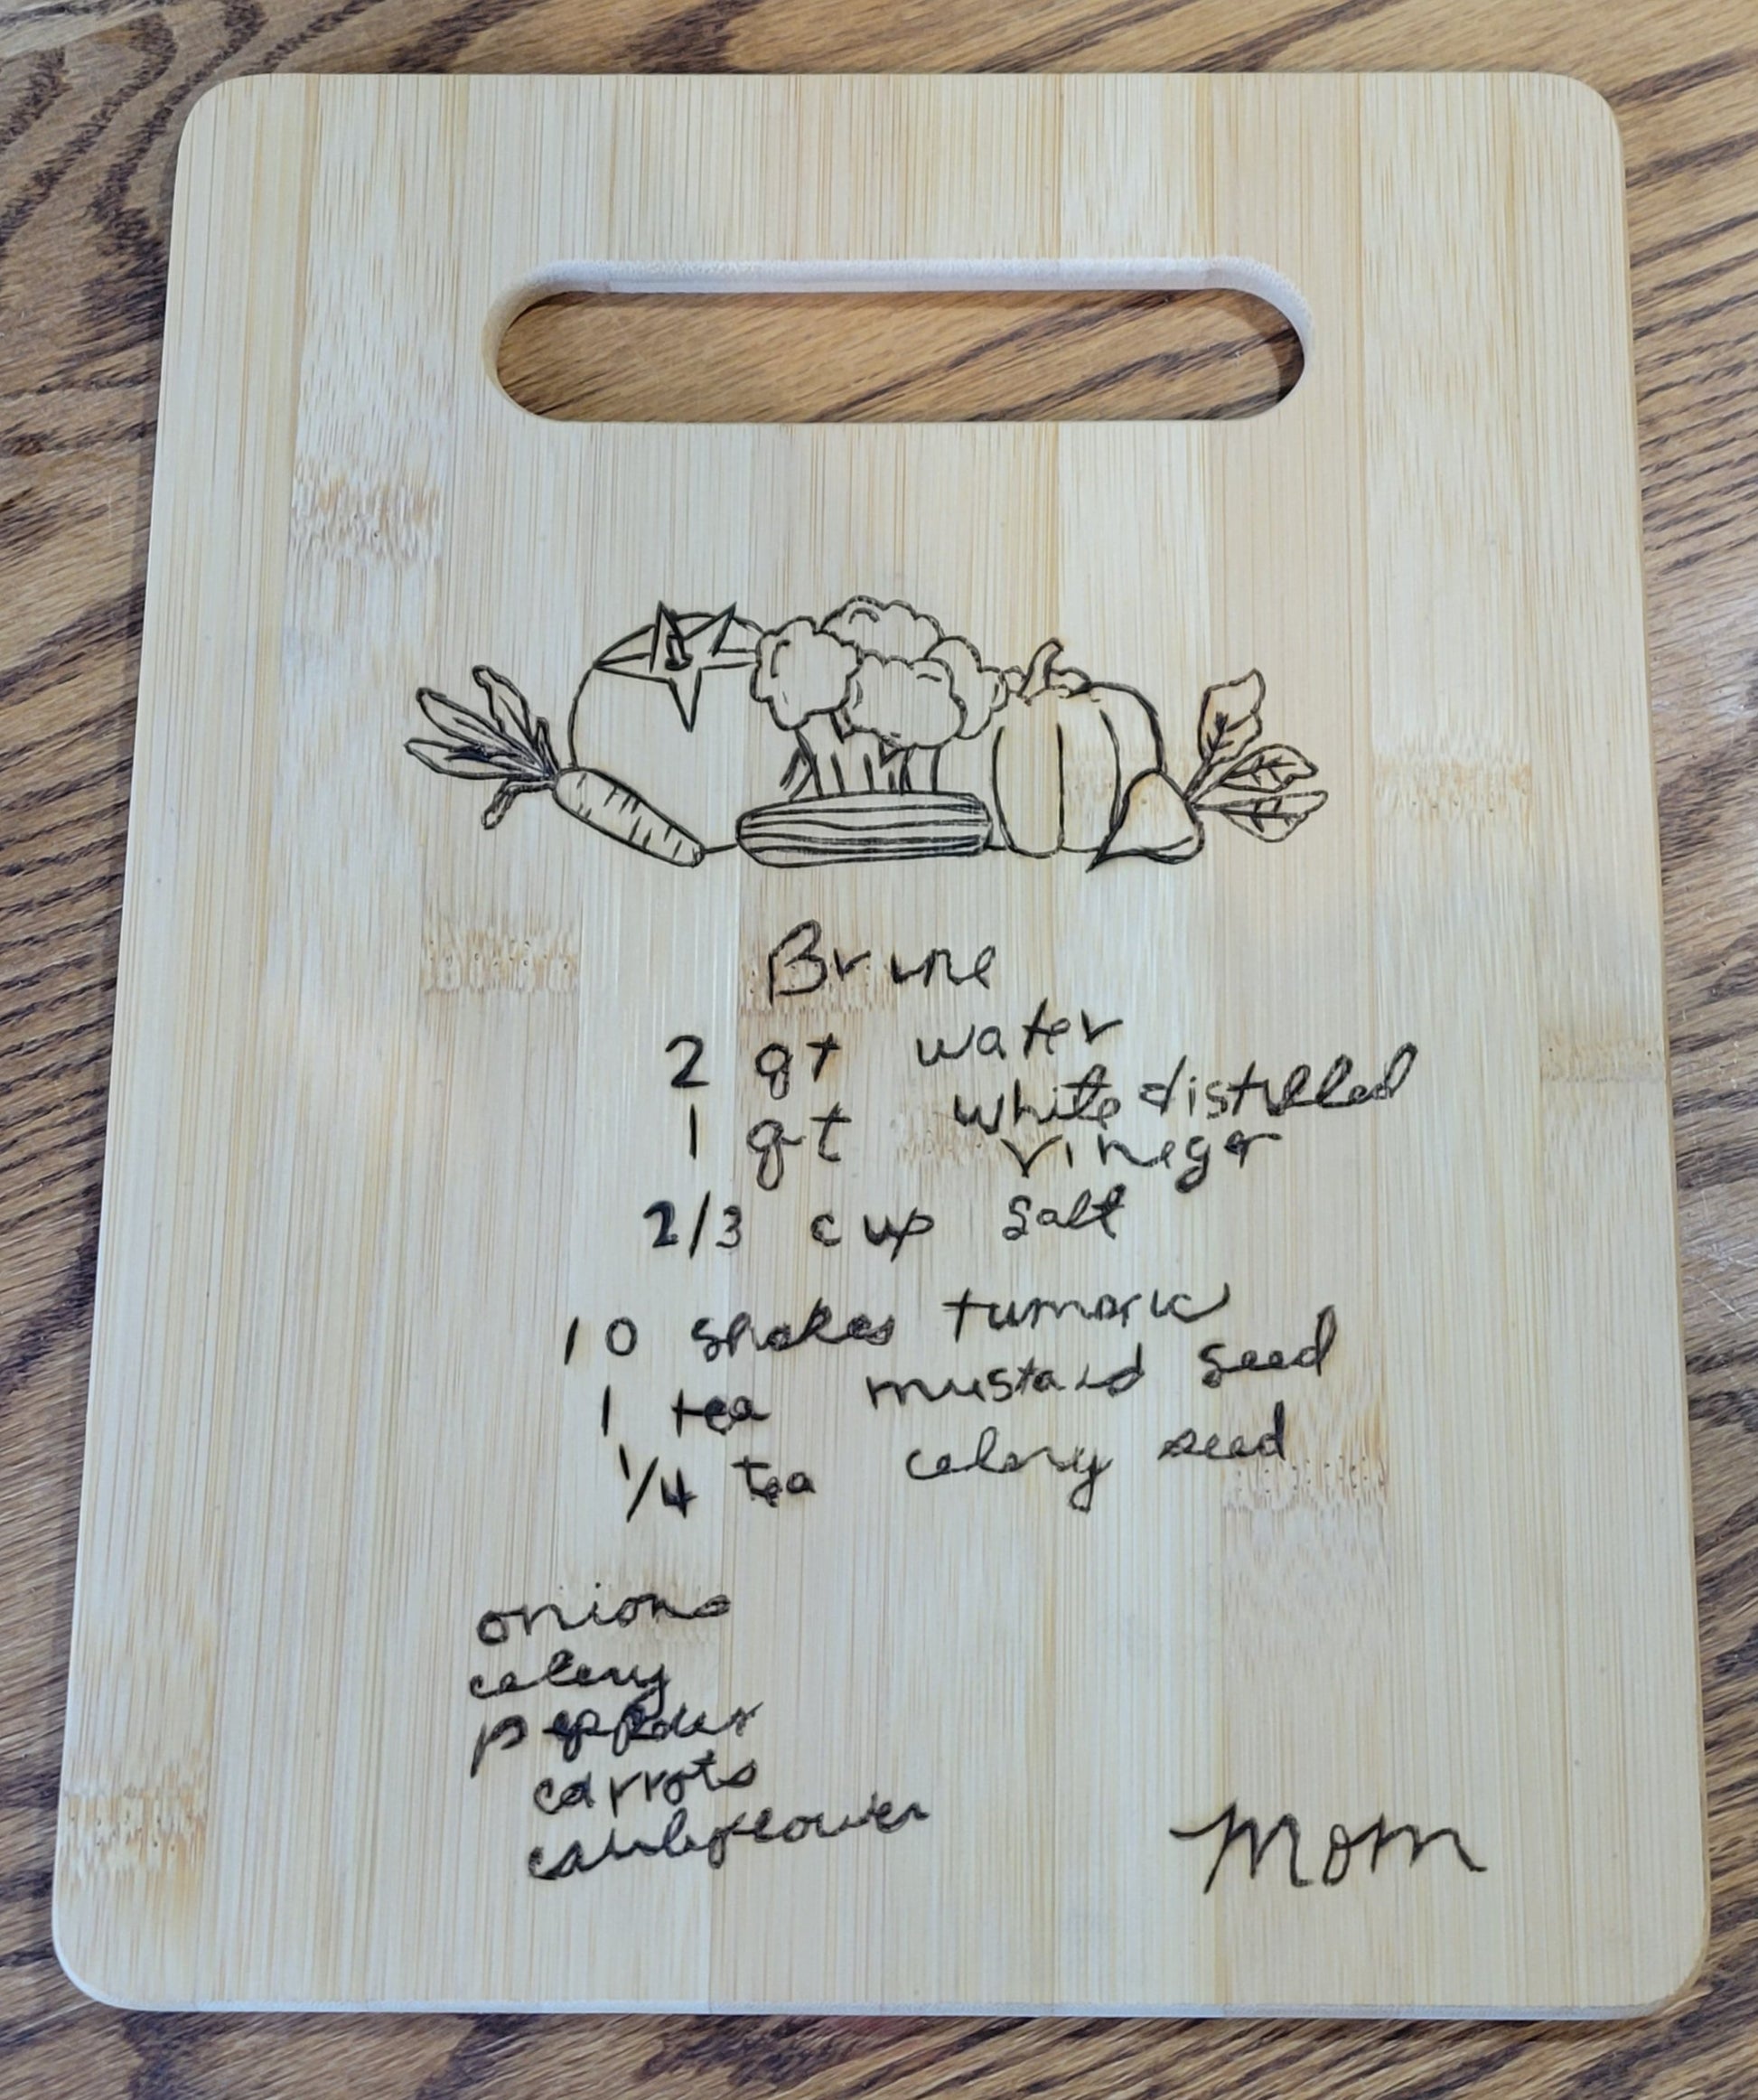 Brine
2 qt water
1 qt white distilled
vinegar
2/3 cup salt
10 shakes tumeric
1 tea mustard seed
1/4 tea celery seed
onions
celery
peppers
carrots
cauliflower
Mom